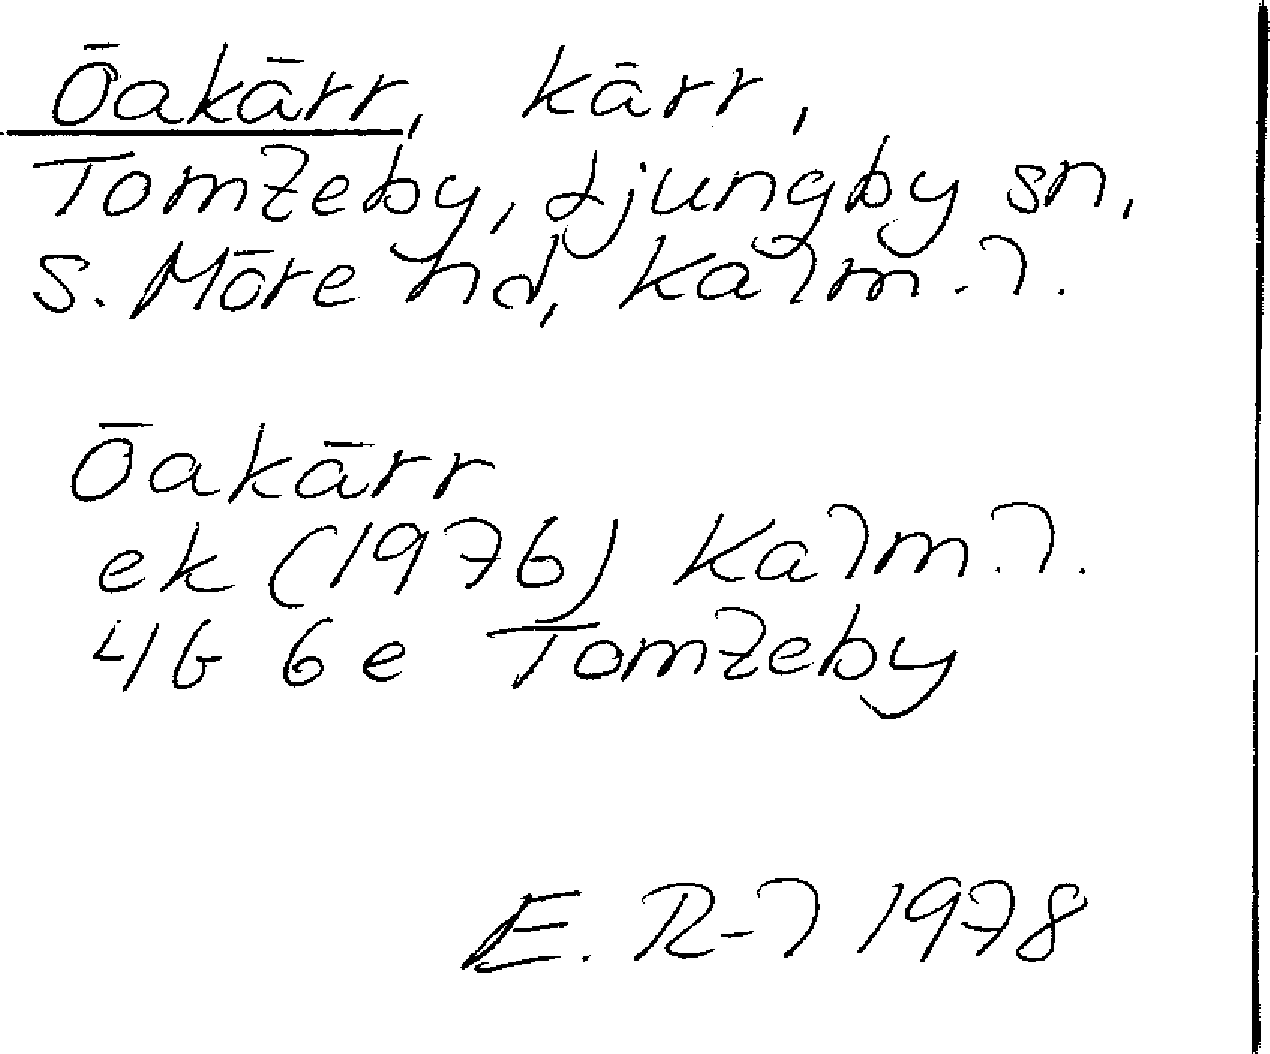 Öakärr, kärr,
Tomteby, Ljungby sn,
S. Möre hd, Kalm. l.
Öakärr
ek (1976) Kalm. l.
4G 6e Tomteby
E. R-l 1978